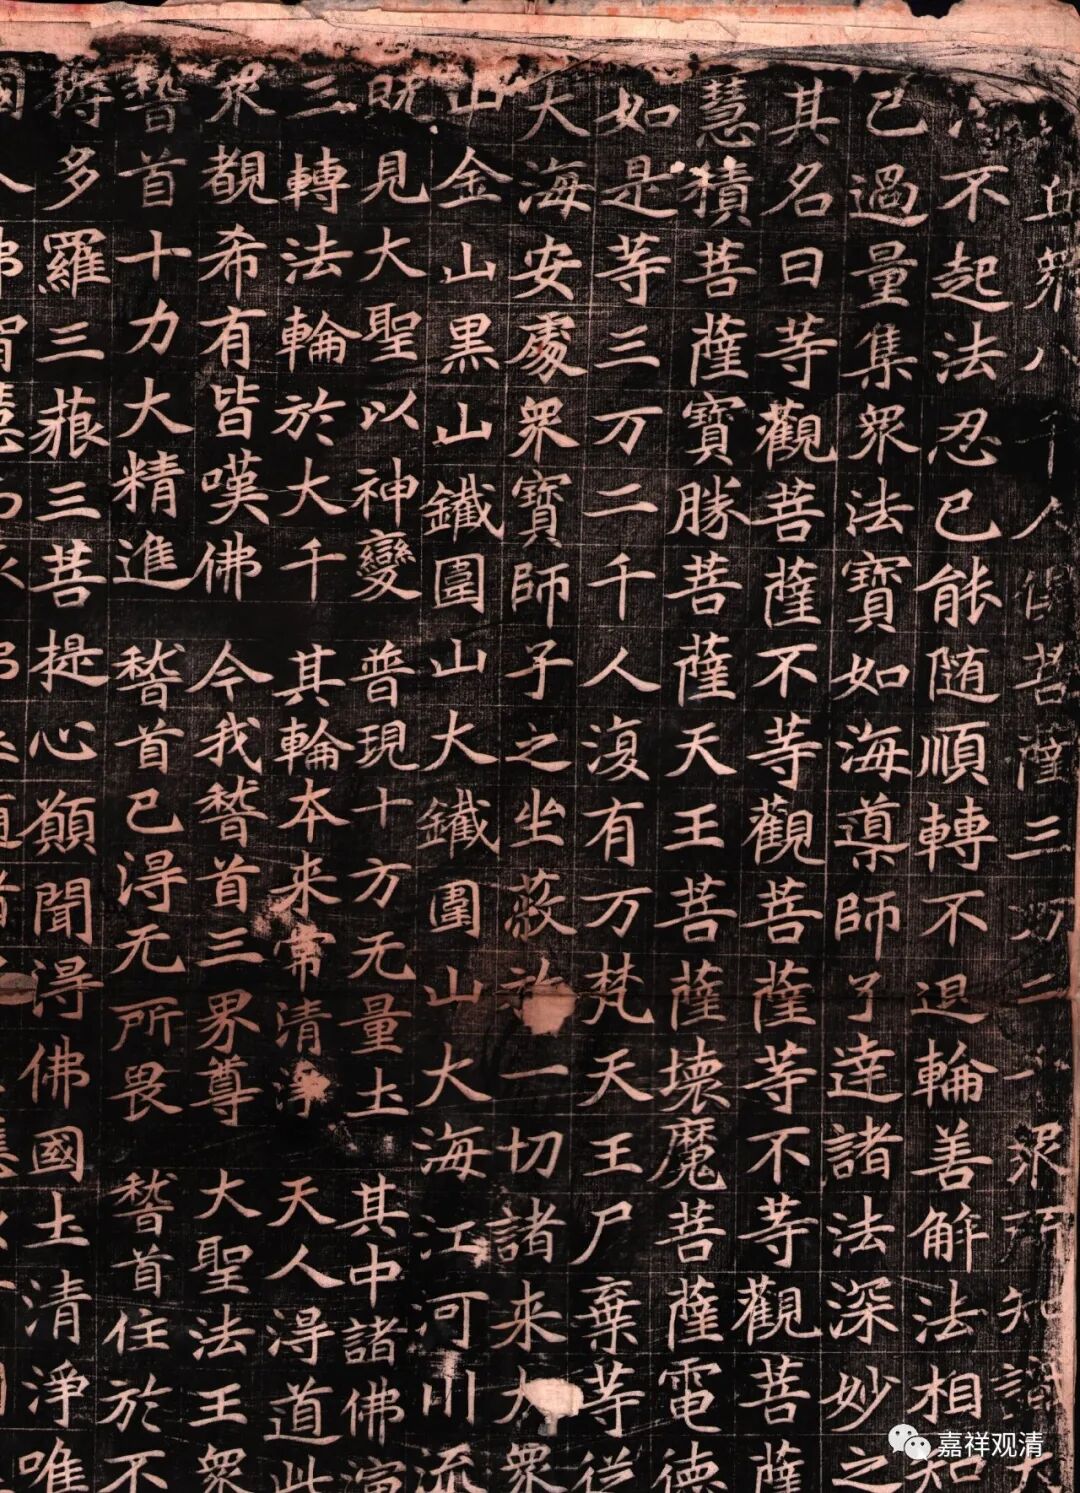 丘衆八千人俱菩薩三万二千衆所知識大
不起法忍已能随順轉不退輪善解法相知
已過量集衆法寶如海導師了達諸法深妙之
其名曰等觀菩薩不等觀菩薩等不等觀菩薩
慧積菩薩寶勝菩薩天王菩薩壞魔菩薩電德
如是等三万二千人復有万梵天王尸棄等従
大海安處衆寶師子之坐蔽於一切諸来大衆
山金山黒山鐵圍山大鐵圍山大海江河川流
既見大聖以神變 普現十方无量土 其中諸佛演
三轉法輪於大千 其輪本来常清淨 天人得道此
衆覩希有皆嘆佛 今我稽首三界尊 大聖法王衆
稽首十力大精進 稽首已得无所畏 稽首住於不
耨多羅三藐三菩提心願聞得佛國土清淨唯
嘉祥观清